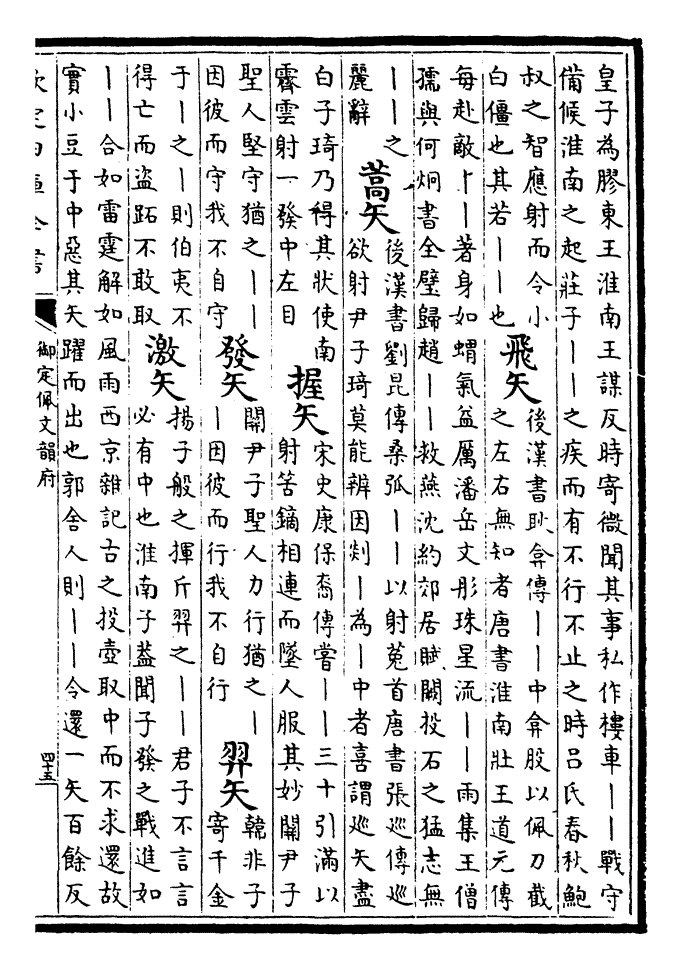 皇子為膠東王淮南王謀反時寄微聞其事私作樓車｜｜戰守
備候淮南之起莊子｜｜之疾而有不行不止之時呂氏春秋鮑
叔之智應射而令小
白僵也其若｜｜也
飛矢
後漢書耿弇傳｜｜中弇股以佩刀截
之左右無知者唐書淮南壯王道元傳
每赴敵｜｜著身如蝟氣益厲潘岳文彤珠星流｜｜雨集王僧
孺與何炯書全璧歸趙｜｜救燕沈約郊居賦闕投石之猛志無
｜｜之
麗辭
蒿矢
後漢書劉昆傳桑弧｜｜以射菟首唐書張巡傳巡
欲射尹子琦莫能辨因剡｜為｜中者喜謂巡矢盡
白子琦乃得其狀使南
霽雲射一發中左目
握矢
宋史康保裔傳嘗｜｜三十引滿以
射筈鏑相連而墜人服其妙關尹子
聖人堅守猶之｜｜
因彼而守我不自守
發矢
關尹子聖人力行猶之｜
｜因彼而行我不自行
羿矢
韓非子
寄千金
于｜之｜則伯夷不
得亡而盜跖不敢取
激矢
揚子般之揮斤羿之｜｜君子不言言
必有中也淮南子蓋聞子發之戰進如
｜｜合如雷霆解如風雨西京雜記古之投壺取中而不求還故
實小豆于中惡其矢躍而出也郭舍人則｜｜令還一矢百餘反
欽定四庫全書
御定佩文韻府
四十五